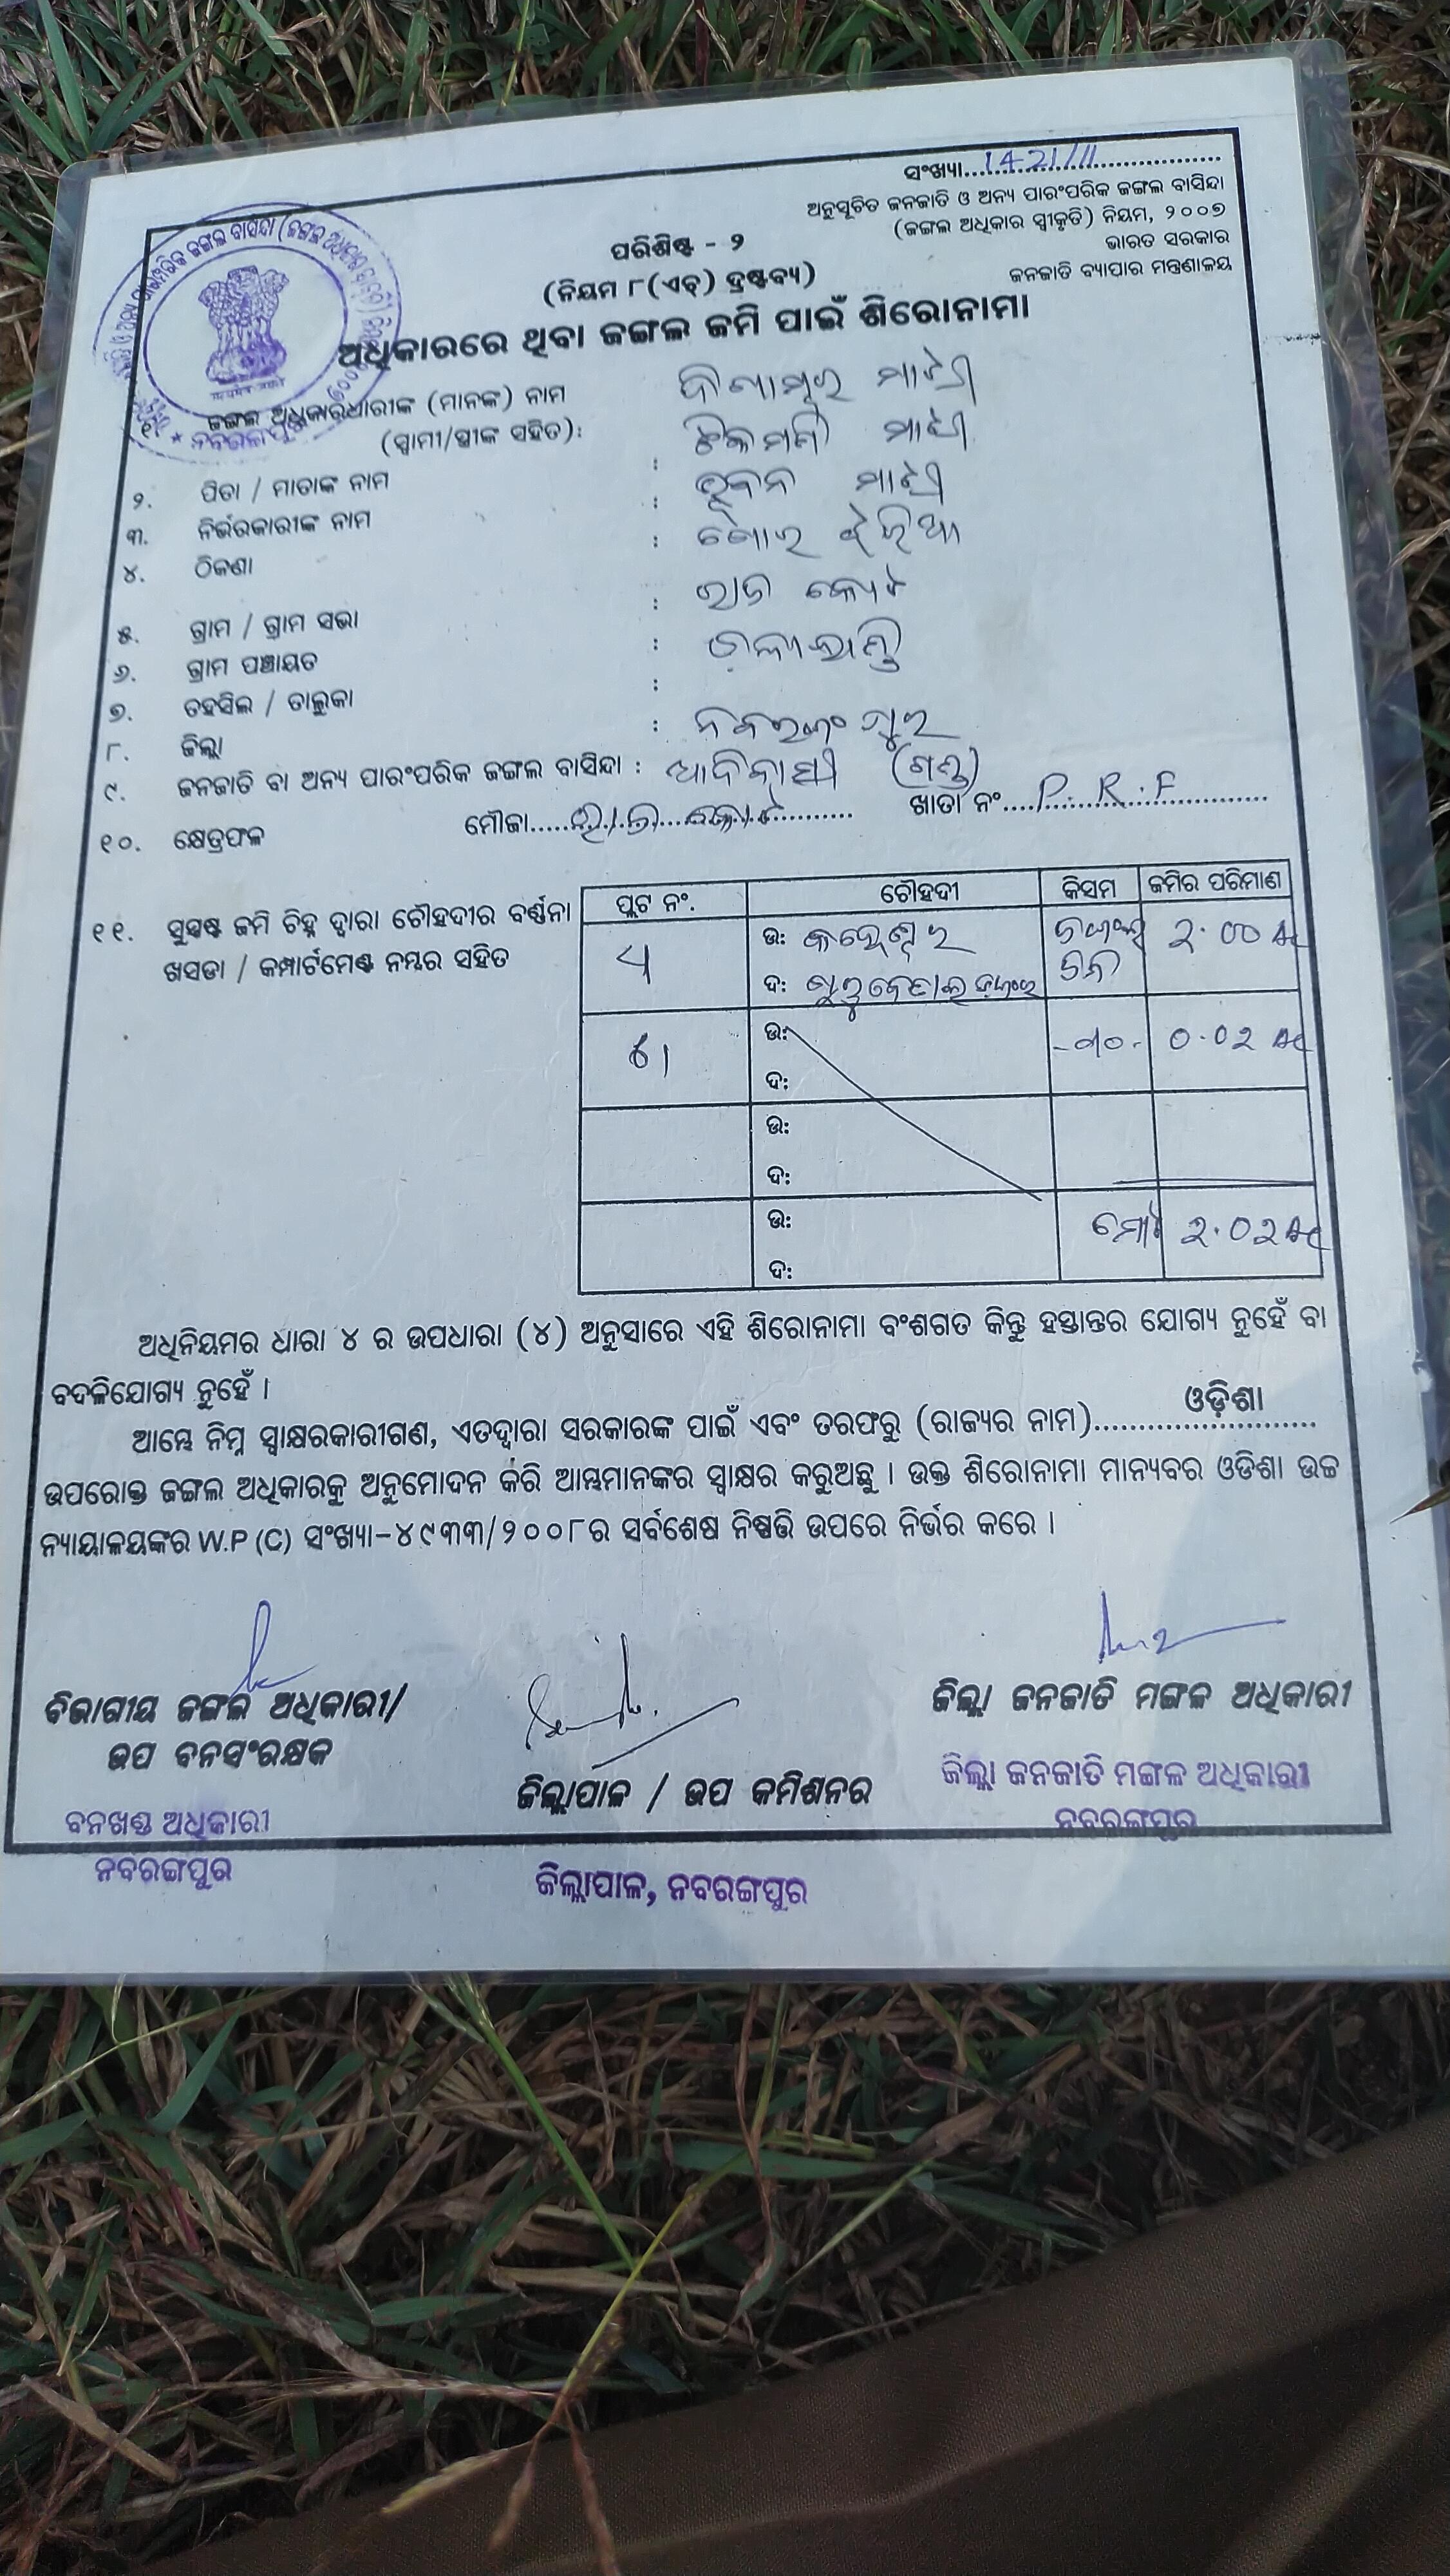 ସଂଖ୍ୟା...1421/11...
ଅନୁସୂଚିତ ଜନଜାତି ଓ ଅନ୍ୟ ପାରଂପରିକ ଜଙ୍ଗଲ ବାସିନ୍ଦା
(ଜଙ୍ଗଲ ଅଧିକାର ସ୍ୱୀକୃତି) ନିୟମ, ୨୦୦୭
ଭାରତ ସରକାର
ଜନଜାତି ବ୍ୟାପାର ମନ୍ତ୍ରଣାଳୟ
ପରିଶିଷ୍ଟ - ୨
(ନିୟମ ୮(ଏଚ୍) ଦ୍ରଷ୍ଟବ୍ୟ)
ଅଧିକାରରେ ଥିବା ଜଙ୍ଗଲ ଜମି ପାଇଁ ଶିରୋନାମା
୧. ଜଙ୍ଗଲ ଅଧିକାରଧାରୀଙ୍କ (ମାନଙ୍କ) ନାମ
(ସ୍ୱାମୀ/ସ୍ତ୍ରୀଙ୍କ ସହିତ):
ନବରଙ୍ଗପୁର
୨. ପିତା / ମାତାଙ୍କ ନାମ :
୩. ନିର୍ଭରକାରୀଙ୍କ ନାମ :
୪. ଠିକଣା :
୫. ଗ୍ରାମ / ଗ୍ରାମ ସଭା : ରାଜ କୋଟ
୬. ଗ୍ରାମ ପଞ୍ଚାୟତ :
୭. ତହସିଲ / ତାଲୁକା :
୮. ଜିଲ୍ଲା : ନବରଙ୍ଗପୁର
୯. ଜନଜାତି ବା ଅନ୍ୟ ପାରଂପରିକ ଜଙ୍ଗଲ ବାସିନ୍ଦା : ଆଦିବାସୀ (ଗଣ୍ଡ)
୧୦. କ୍ଷେତ୍ରଫଳ ମୌଜା...ରାଜ କୋଟ... ଖାତା ନଂ...P.R.F...
୧୧. ସୁସ୍ପଷ୍ଟ ଜମି ଚିହ୍ନ ଦ୍ୱାରା ଚୌହଦୀର ବର୍ଣ୍ଣନା
ଖସଡା / କମ୍ପାର୍ଟମେଣ୍ଟ ନମ୍ବର ସହିତ
ପ୍ଲଟ ନଂ. ଚୌହଦୀ କିସମ ଜମିର ପରିମାଣ
ଉ: ୨.୦୦ Ac
ଦ:
ଉ: ୦.୦୨ Ac
ଦ:
ଉ:
ଦ:
ଉ: ମୋଟ ୨.୦୨ Ac
ଦ:
ଅଧିନିୟମର ଧାରା ୪ ର ଉପଧାରା (୪) ଅନୁସାରେ ଏହି ଶିରୋନାମା ବଂଶଗତ କିନ୍ତୁ ହସ୍ତାନ୍ତର ଯୋଗ୍ୟ ନୁହେଁ ବା
ବଦଳିଯୋଗ୍ୟ ନୁହେଁ ।
ଆମ୍ଭେ ନିମ୍ନ ସ୍ୱାକ୍ଷରକାରୀଗଣ, ଏତଦ୍ୱାରା ସରକାରଙ୍କ ପାଇଁ ଏବଂ ତରଫରୁ (ରାଜ୍ୟର ନାମ)...ଓଡ଼ିଶା...
ଉପରୋକ୍ତ ଜଙ୍ଗଲ ଅଧିକାରକୁ ଅନୁମୋଦନ କରି ଆମ୍ଭମାନଙ୍କର ସ୍ୱାକ୍ଷର କରୁଅଛୁ । ଉକ୍ତ ଶିରୋନାମା ମାନ୍ୟବର ଓଡିଶା ଉଚ୍ଚ
ନ୍ୟାୟାଳୟଙ୍କର W.P (C) ସଂଖ୍ୟା-୪୯୩୩/୨୦୦୮ର ସର୍ବଶେଷ ନିଷ୍ପତ୍ତି ଉପରେ ନିର୍ଭର କରେ ।
ବିଭାଗୀୟ ଜଙ୍ଗଲ ଅଧିକାରୀ/
ଉପ ବନସଂରକ୍ଷକ
ବନଖଣ୍ଡ ଅଧିକାରୀ
ନବରଙ୍ଗପୁର
ଜିଲ୍ଲାପାଳ / ଉପ କମିଶନର
ଜିଲ୍ଲାପାଳ, ନବରଙ୍ଗପୁର
ଜିଲ୍ଲା ଜନଜାତି ମଙ୍ଗଳ ଅଧିକାରୀ
ଜିଲ୍ଲା ଜନଜାତି ମଙ୍ଗଳ ଅଧିକାରୀ
ନବରଙ୍ଗପୁର